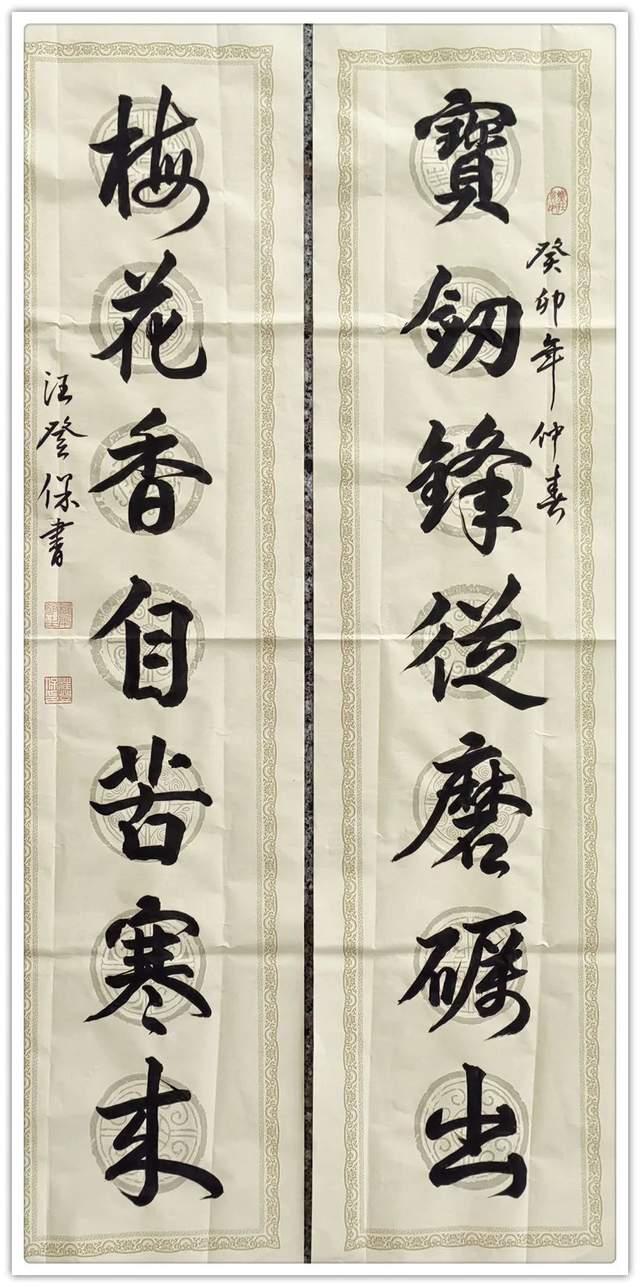 寶釰鋒從磨礪出
癸卯年仲春
梅花香自苦寒来
汪登保書